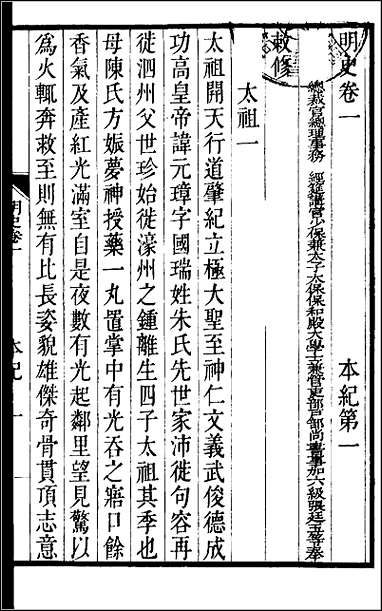 明史卷一 本紀第一
總裁官總理事務 經筵講官少保兼太子太保保和殿大學士兼管吏部戶部尚書事加六級張廷玉等奉
敕修
太祖一
太祖開天行道肇紀立極大聖至神仁文義武俊德成
功高皇帝諱元璋字國瑞姓朱氏先世家沛徙句容再
徙泗州父世珍始徙濠州之鍾離生四子太祖其季也
母陳氏方娠夢神授藥一丸置掌中有光吞之寤口餘
香氣及產紅光滿室自是夜數有光起鄰里望見驚以
為火輒奔救至則無有比長姿貌雄傑奇骨貫頂志意
明史卷一 本紀 一